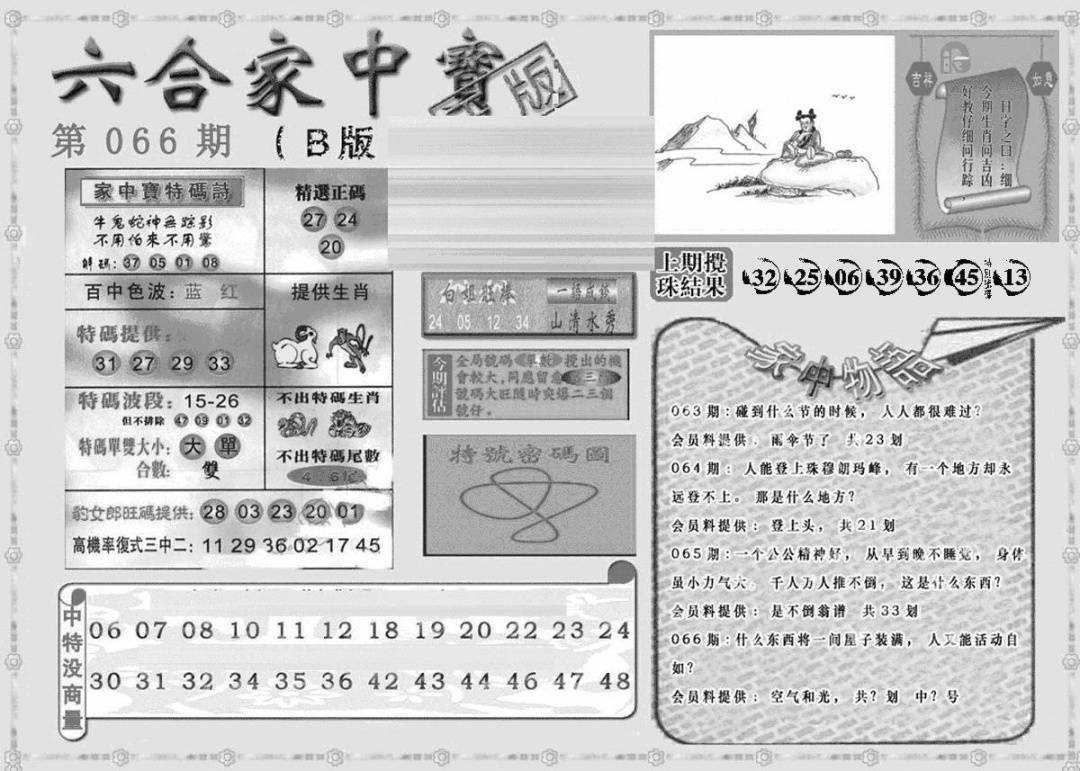 六合家中寶
版
第 066 期 （B版
家中寶特碼詩
牛鬼蛇神無踪影
不用怕來不用驚
解碼：37 05 01 08
精選正碼
27 24
20
百中色波：蓝 红
提供生肖
特碼提供：
31 27 29 33
特碼波段：15-26
但不排除 47 09 01 32
特碼單雙大小：大 單
合數： 雙
不出特碼生肖
不出特碼尾數
豹女郎旺碼提供：28 03 23 20 01
高機率復式三中二：11 29 36 02 17 45
白姐旺棒
24 05 12 34
山清水秀
今期評估
全局號碼 單數 攪出的機
會較大,同應留意 三
號碼大旺隨時突爆二三個
號仔。
特號密碼圖
吉祥
如意
一日字之曰：细
今期生肖问吉凶
好教仔细问行踪
上期攪
珠結果
32 25 06 39 36 45 特別號碼 13
家中物語
063期：碰到什么节的时候，人人都很难过？
会员料提供：雨伞节了 共23划
064期：人能登上珠穆朗玛峰，有一个地方却永
远登不上。那是什么地方？
会员料提供：登上头，共21划
065期：一个公公精神好，从早到晚不睡觉，身体
虽小力气大。千人万人推不倒，这是什么东西？
会员料提供：是不倒翁谱 共33划
066期：什么东西将一间屋子装满，人又能活动自
如？
会员料提供：空气和光，共？划 中？号
中特没商量
06 07 08 10 11 12 18 19 20 22 23 24
30 31 32 34 35 36 42 43 44 46 47 48